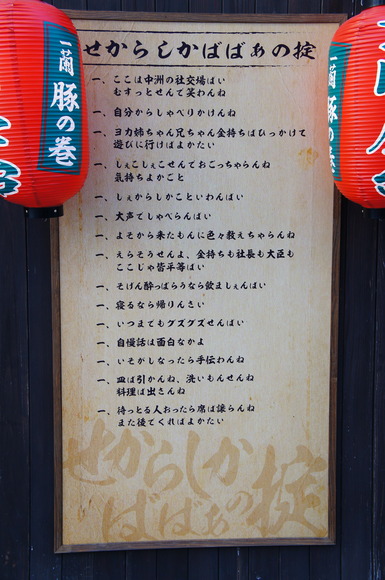 せからしかばばぁの掟
一、ここは中洲の社交場ばい
むすっとせんで笑わんね
一、自分からしゃべりかけんね
一、ヨカ姉ちゃん兄ちゃん金持ちはひっかけて
遊びに行けばよかたい
一、しぇこしぇこせんておこっちゃらんね
気持ちよかこと
一、しぇからしかこといわんばい
一、大声でしゃべらんばい
一、よそから来たもんに色々教えちゃらんね
一、えらそうせんよ、金持ちも社長も大臣も
ここじゃ皆平等ばい
一、そげん酔っぱらうなら飲ましぇんばい
一、寝るなら帰りんさい
一、いつまでもグズグズせんばい
一、自慢話は面白なかよ
一、いそがしなったら手伝わんね
一、皿は引かんね、洗いもんせんね
料理は出さんね
一、待っとる人おったら席は譲らんね
また後でくればよかたい
せからしか
ばばぁの掟
一蘭 豚の巻